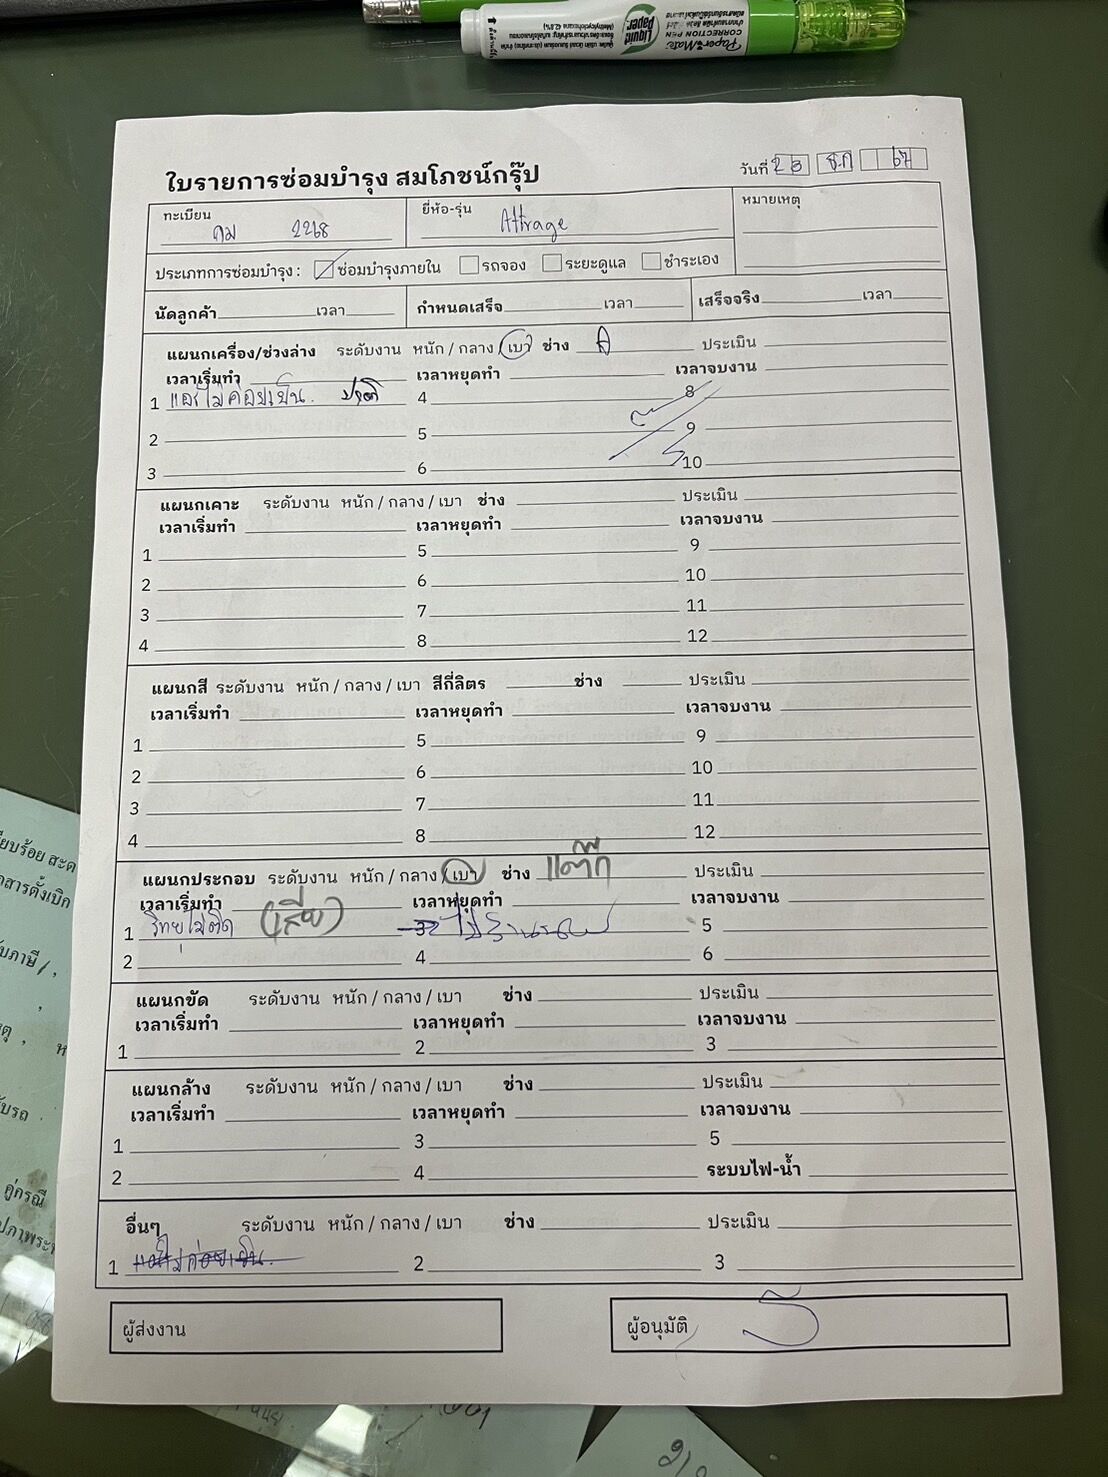 Liquid Paper
Paper Mate
CORRECTION PEN
ใบรายการซ่อมบำรุง สมโภชน์กรุ๊ป
วันที่ 23 ธ.ค 67
ทะเบียน
2268
ยี่ห้อ-รุ่น
Attrage
หมายเหตุ
ประเภทการซ่อมบำรุง : ซ่อมบำรุงภายใน รถจอง ระยะดูแล ชำระเอง
นัดลูกค้า เวลา กำหนดเสร็จ เวลา เสร็จจริง เวลา
แผนกเครื่อง/ช่วงล่าง ระดับงาน หนัก / กลาง / เบา ช่าง ประเมิน
เวลาเริ่มทำ เวลาหยุดทำ เวลาจบงาน
1 แอร์ไม่ค่อยเย็น. ปกติ 4 8
2 5 9
3 6 10
แผนกเคาะ ระดับงาน หนัก / กลาง / เบา ช่าง ประเมิน
เวลาเริ่มทำ เวลาหยุดทำ เวลาจบงาน
1 5 9
2 6 10
3 7 11
4 8 12
แผนกสี ระดับงาน หนัก / กลาง / เบา สีกี่ลิตร ช่าง ประเมิน
เวลาเริ่มทำ เวลาหยุดทำ เวลาจบงาน
1 5 9
2 6 10
3 7 11
4 8 12
แผนกประกอบ ระดับงาน หนัก / กลาง / เบา ช่าง ประเมิน
เวลาเริ่มทำ เวลาหยุดทำ เวลาจบงาน
1 วิทยุไม่ติด (เสีย) 3 5
2 4 6
แผนกขัด ระดับงาน หนัก / กลาง / เบา ช่าง ประเมิน
เวลาเริ่มทำ เวลาหยุดทำ เวลาจบงาน
1 2 3
แผนกล้าง ระดับงาน หนัก / กลาง / เบา ช่าง ประเมิน
เวลาเริ่มทำ เวลาหยุดทำ เวลาจบงาน
1 3 5
2 4 ระบบไฟ-น้ำ
อื่นๆ ระดับงาน หนัก / กลาง / เบา ช่าง ประเมิน
1 แอร์ไม่ค่อยเย็น. 2 3
ผู้ส่งงาน
ผู้อนุมัติ